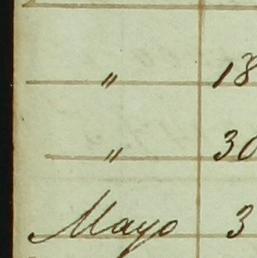 " 18
" 30
Mayo 3